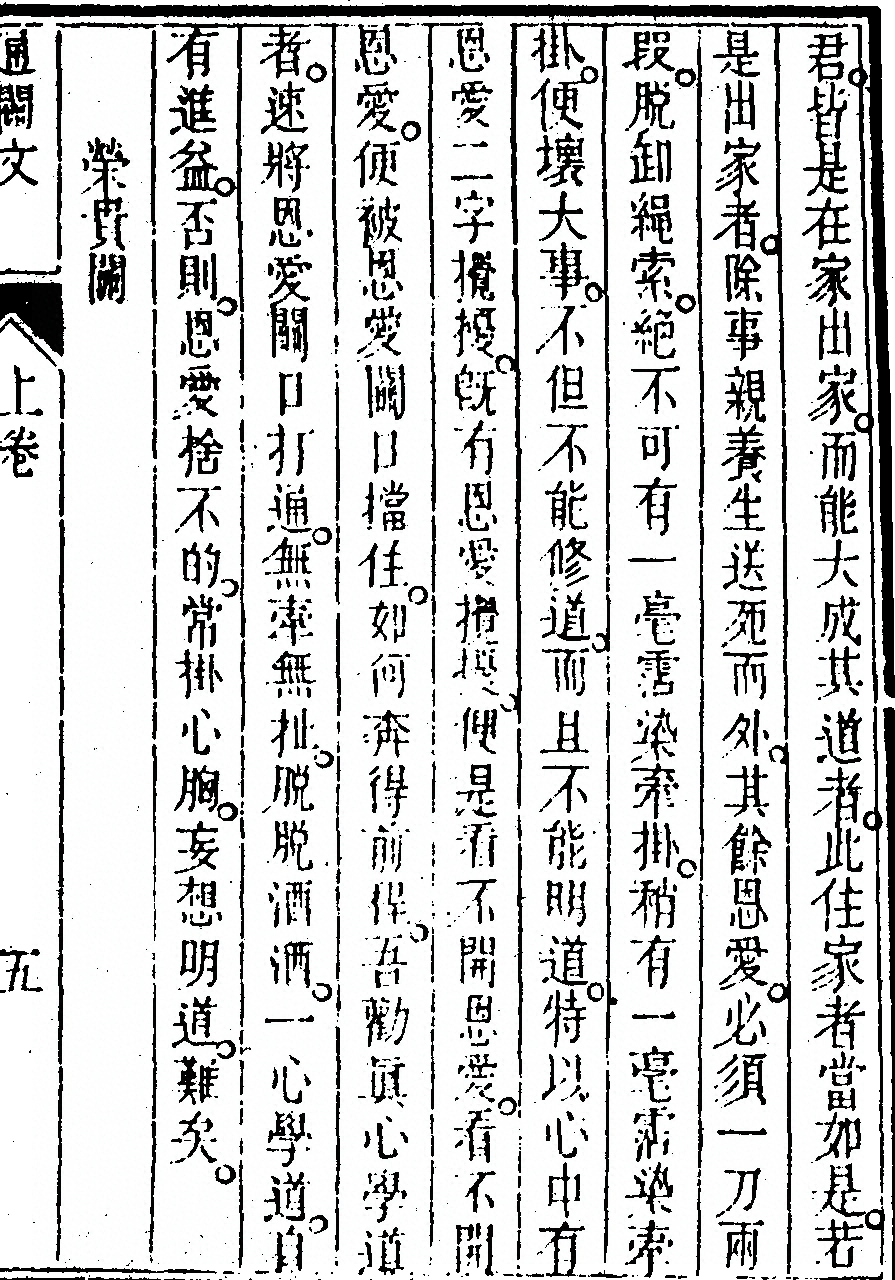 君皆是在家出家而能大成其道者此住家者當如是若
是出家者除事親養生送死而外其餘恩愛必須一刀兩
段脫卸繩索絕不可有一毫霑染牽掛稍有一毫霑染牽
掛便壞大事不但不能修道而且不能明道特以心中有
恩愛二字攪擾旣有恩愛攪擾便是看不開恩愛看不開
恩愛便被恩愛關口擋住如何奔得前程吾勸眞心學道
者速將恩愛關口打通無牽無扯脫脫洒洒一心學道自
有進益否則恩愛捨不的常掛心胸妄想明道難矣
榮貴關
通關文
上卷
五